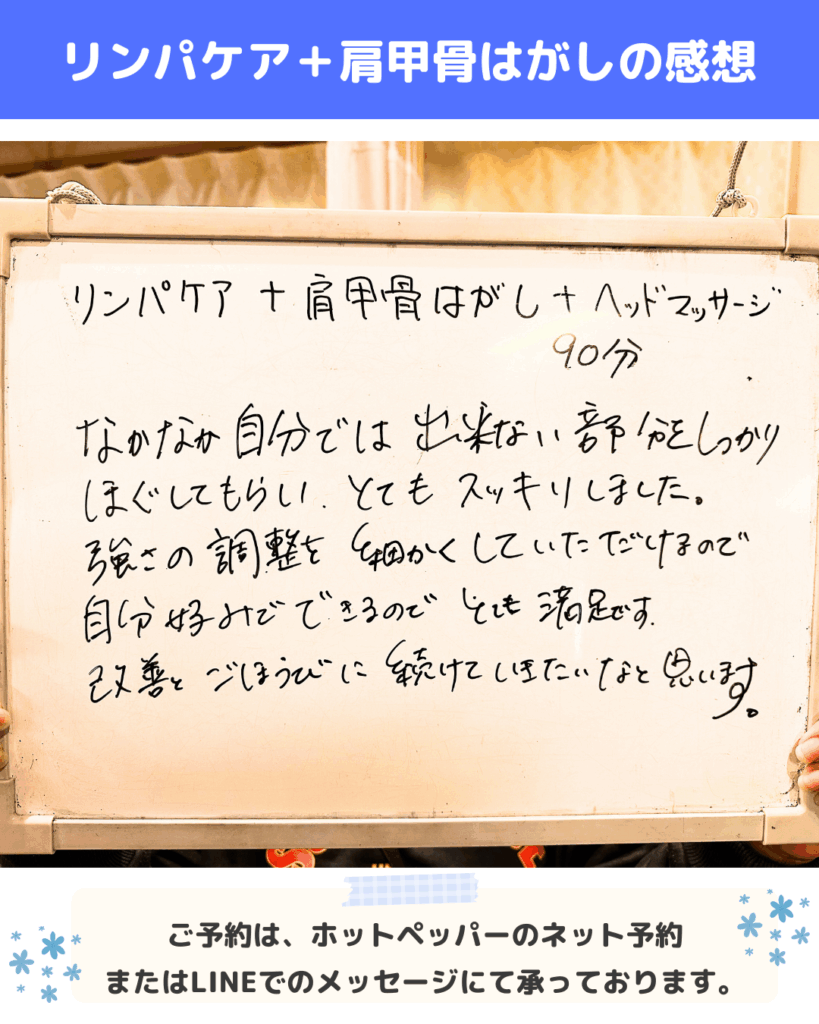 リンパケア＋肩甲骨はがしの感想
リンパケア + 肩甲骨はがし + ヘッドマッサージ
90分
なかなか自分では出来ない部分をしっかり
ほぐしてもらい、とてもスッキリしました。
強さの調整を細かくしていただけるので
自分好みでできるのでとても満足です。
改善とごほうびに続けていきたいなと思います。
ご予約は、ホットペッパーのネット予約
またはLINEでのメッセージにて承っております。